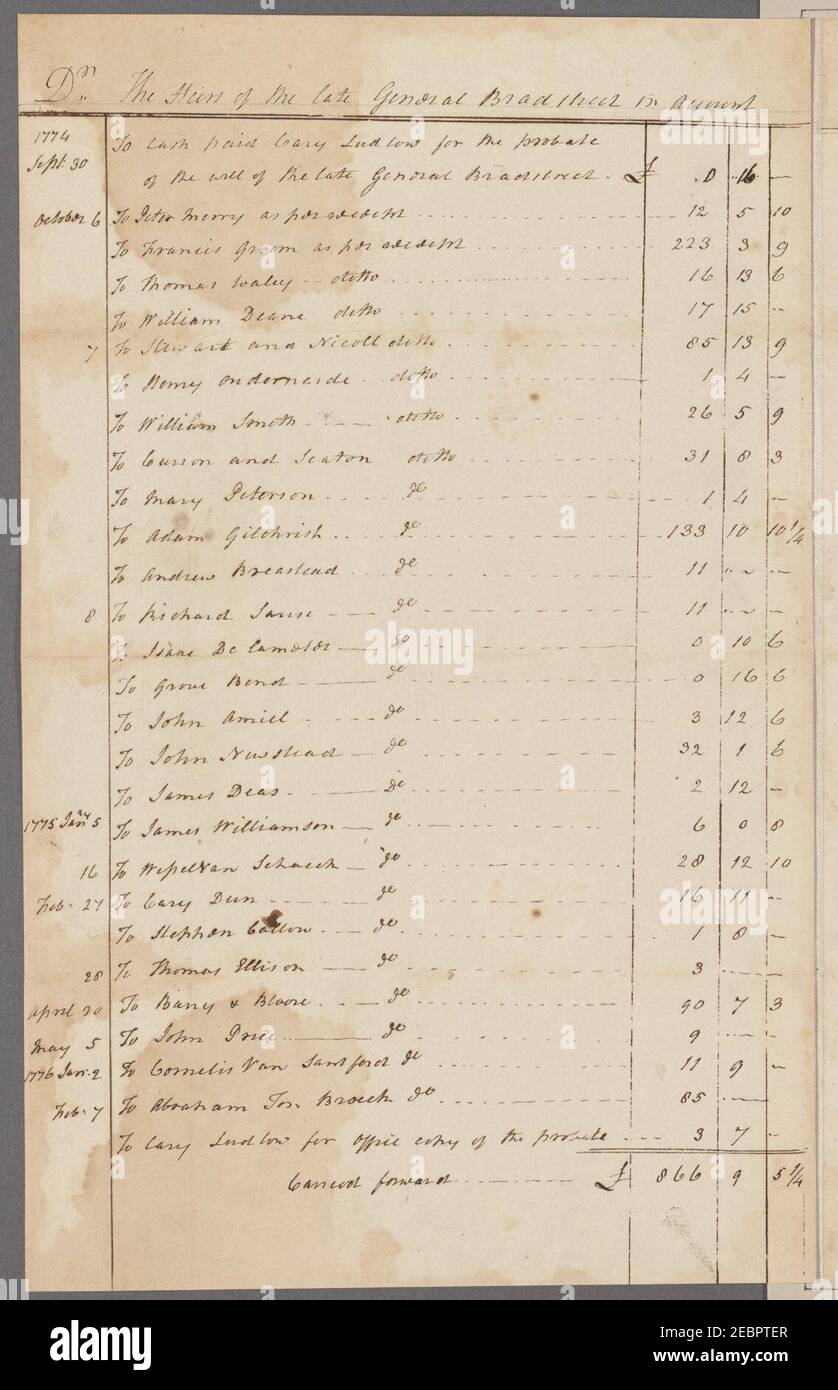 Dr. The Heirs of the late General Bradstreet in account
1774 Sept. 30 To Cash paid Cary Ludlow for the probate
of the will of the late General Bradstreet - £ .0 16 —
October 6 To Peter Merry as per 12 5 10
To Francis Groom as per 223 3 9
To Thomas Waley - ditto 16 13 6
To William Deane ditto 17 15 --
7 To Stewart and Nicoll ditto 85 13 9
To ditto 1 4 —
To William Smith ditto 26 5 9
To Curson and Seaton ditto 31 8 3
To Mary Peterson do 1 4 —
To Adam Gilchrish do 133 10 10 1/4
To Andrew Breastead do 11 -- --
8 To Richard Sause do 11 -- --
To Isaac De do 0 10 6
To Grove Bend do 0 16 6
To John Amiell do 3 12 6
To John Newstead do 32 1 6
To James Deas do 2 12 —
1775 Jany 5 To James Williamson do 6 0 8
16 To Van Schaeck do 28 12 10
Feb. 27 To Cary Dun do 16 11 —
To Stephen Callow do 1 8 —
28 To Thomas Ellison do 3
April 20 To Barry & Bloore do 90 7 3
May 5 To John Price do 9
1776 Jan. 2 To Cornelis Van Santford do 11 9 —
Feb. 7 To Abraham Ten Broeck do 85
To Cary Ludlow for office copy of the probate 3 7 -
Carried forward £ 866 9 5 1/4
alamy
Image ID: 2EBPTER
www.alamy.com